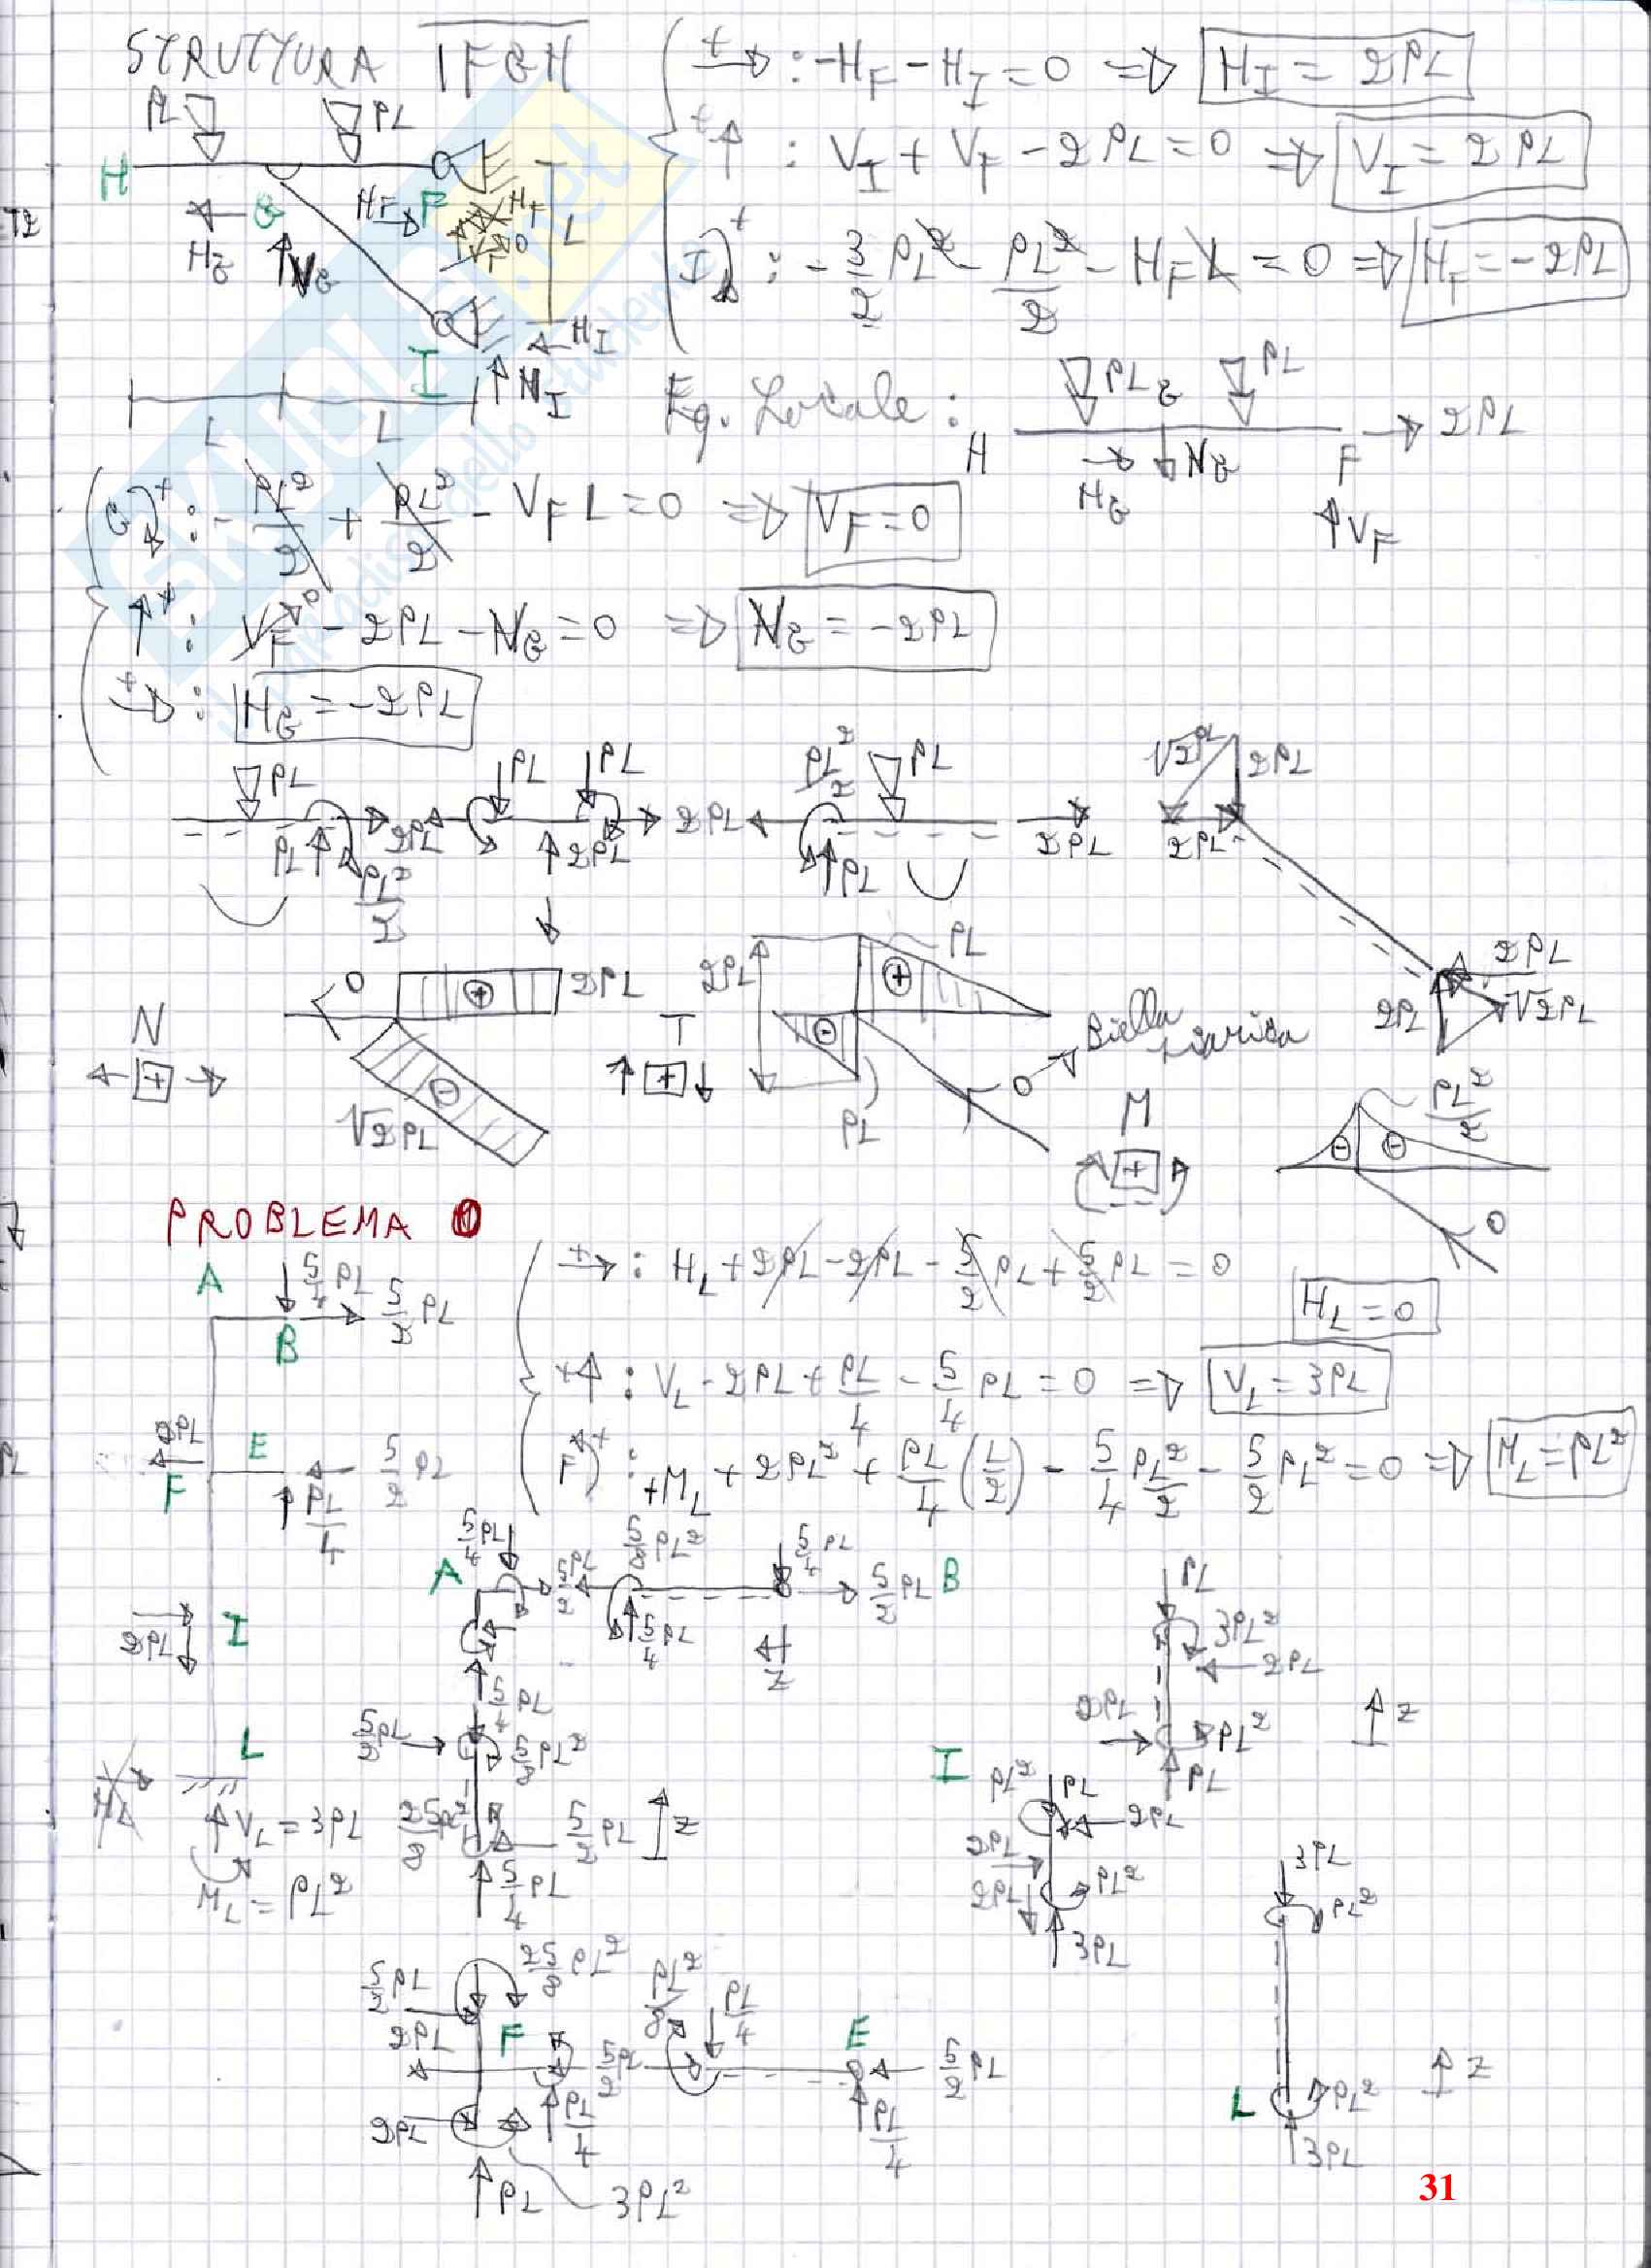 STRUTTURA IFGH
+→ : -H_F - H_I = 0 ⇒ H_I = 2PL
+↑ : V_I + V_F - 2PL = 0 ⇒ V_I = 2PL
I) + : - 3/2 PL² - PL²/2 - H_F L = 0 ⇒ H_F = -2PL
PL PL
H G H_F F
H_G N_G
L
H_I
I N_I
L L
Eq. Locale :
PL G PL
H F → 2PL
H_G N_G V_F
G) + : - PL²/2 + PL²/2 - V_F L = 0 ⇒ V_F = 0
↑+ : V_F - 2PL - N_G = 0 ⇒ N_G = -2PL
+→ : H_G = -2PL
PL PL PL PL²/2 PL √2PL 2PL
2PL 2PL 2PL 2PL
PL PL²/2 2PL PL
N + 0 + 2PL - √2PL
T + 2PL PL + - PL 0 → Biella
2PL 2PL √2PL
M + PL²/2 - - 0
PROBLEMA 0
+→ : H_L + 2PL - 2PL - 5/2 PL + 5/2 PL = 0
H_L = 0
+↑ : V_L - 2PL + PL/4 - 5/4 PL = 0 ⇒ V_L = 3PL
F) + : +M_L + 2PL² + PL/4 (L/2) - 5/4 PL²/2 - 5/2 PL² = 0 ⇒ M_L = PL²
A 5/4 PL 5/2 PL
B
2PL E 5/2 PL
F PL/4
2PL I
L
V_L = 3PL
M_L = PL²
A 5/4 PL 5/2 PL 5/8 PL² 5/4 PL 5/2 PL B
5/4 PL z
5/4 PL
5/2 PL 5/8 PL²
25/8 PL² 5/2 PL z
5/4 PL
PL
3PL²
2PL
2PL PL² z
PL
I PL² PL
2PL
2PL PL²
2PL
3PL
3PL
PL²
z
L PL²
3PL
5/2 PL 25/8 PL²
2PL F 5/2 PL PL²/8 PL/4 E 5/2 PL
2PL PL/4 PL/4
PL 3PL²
31